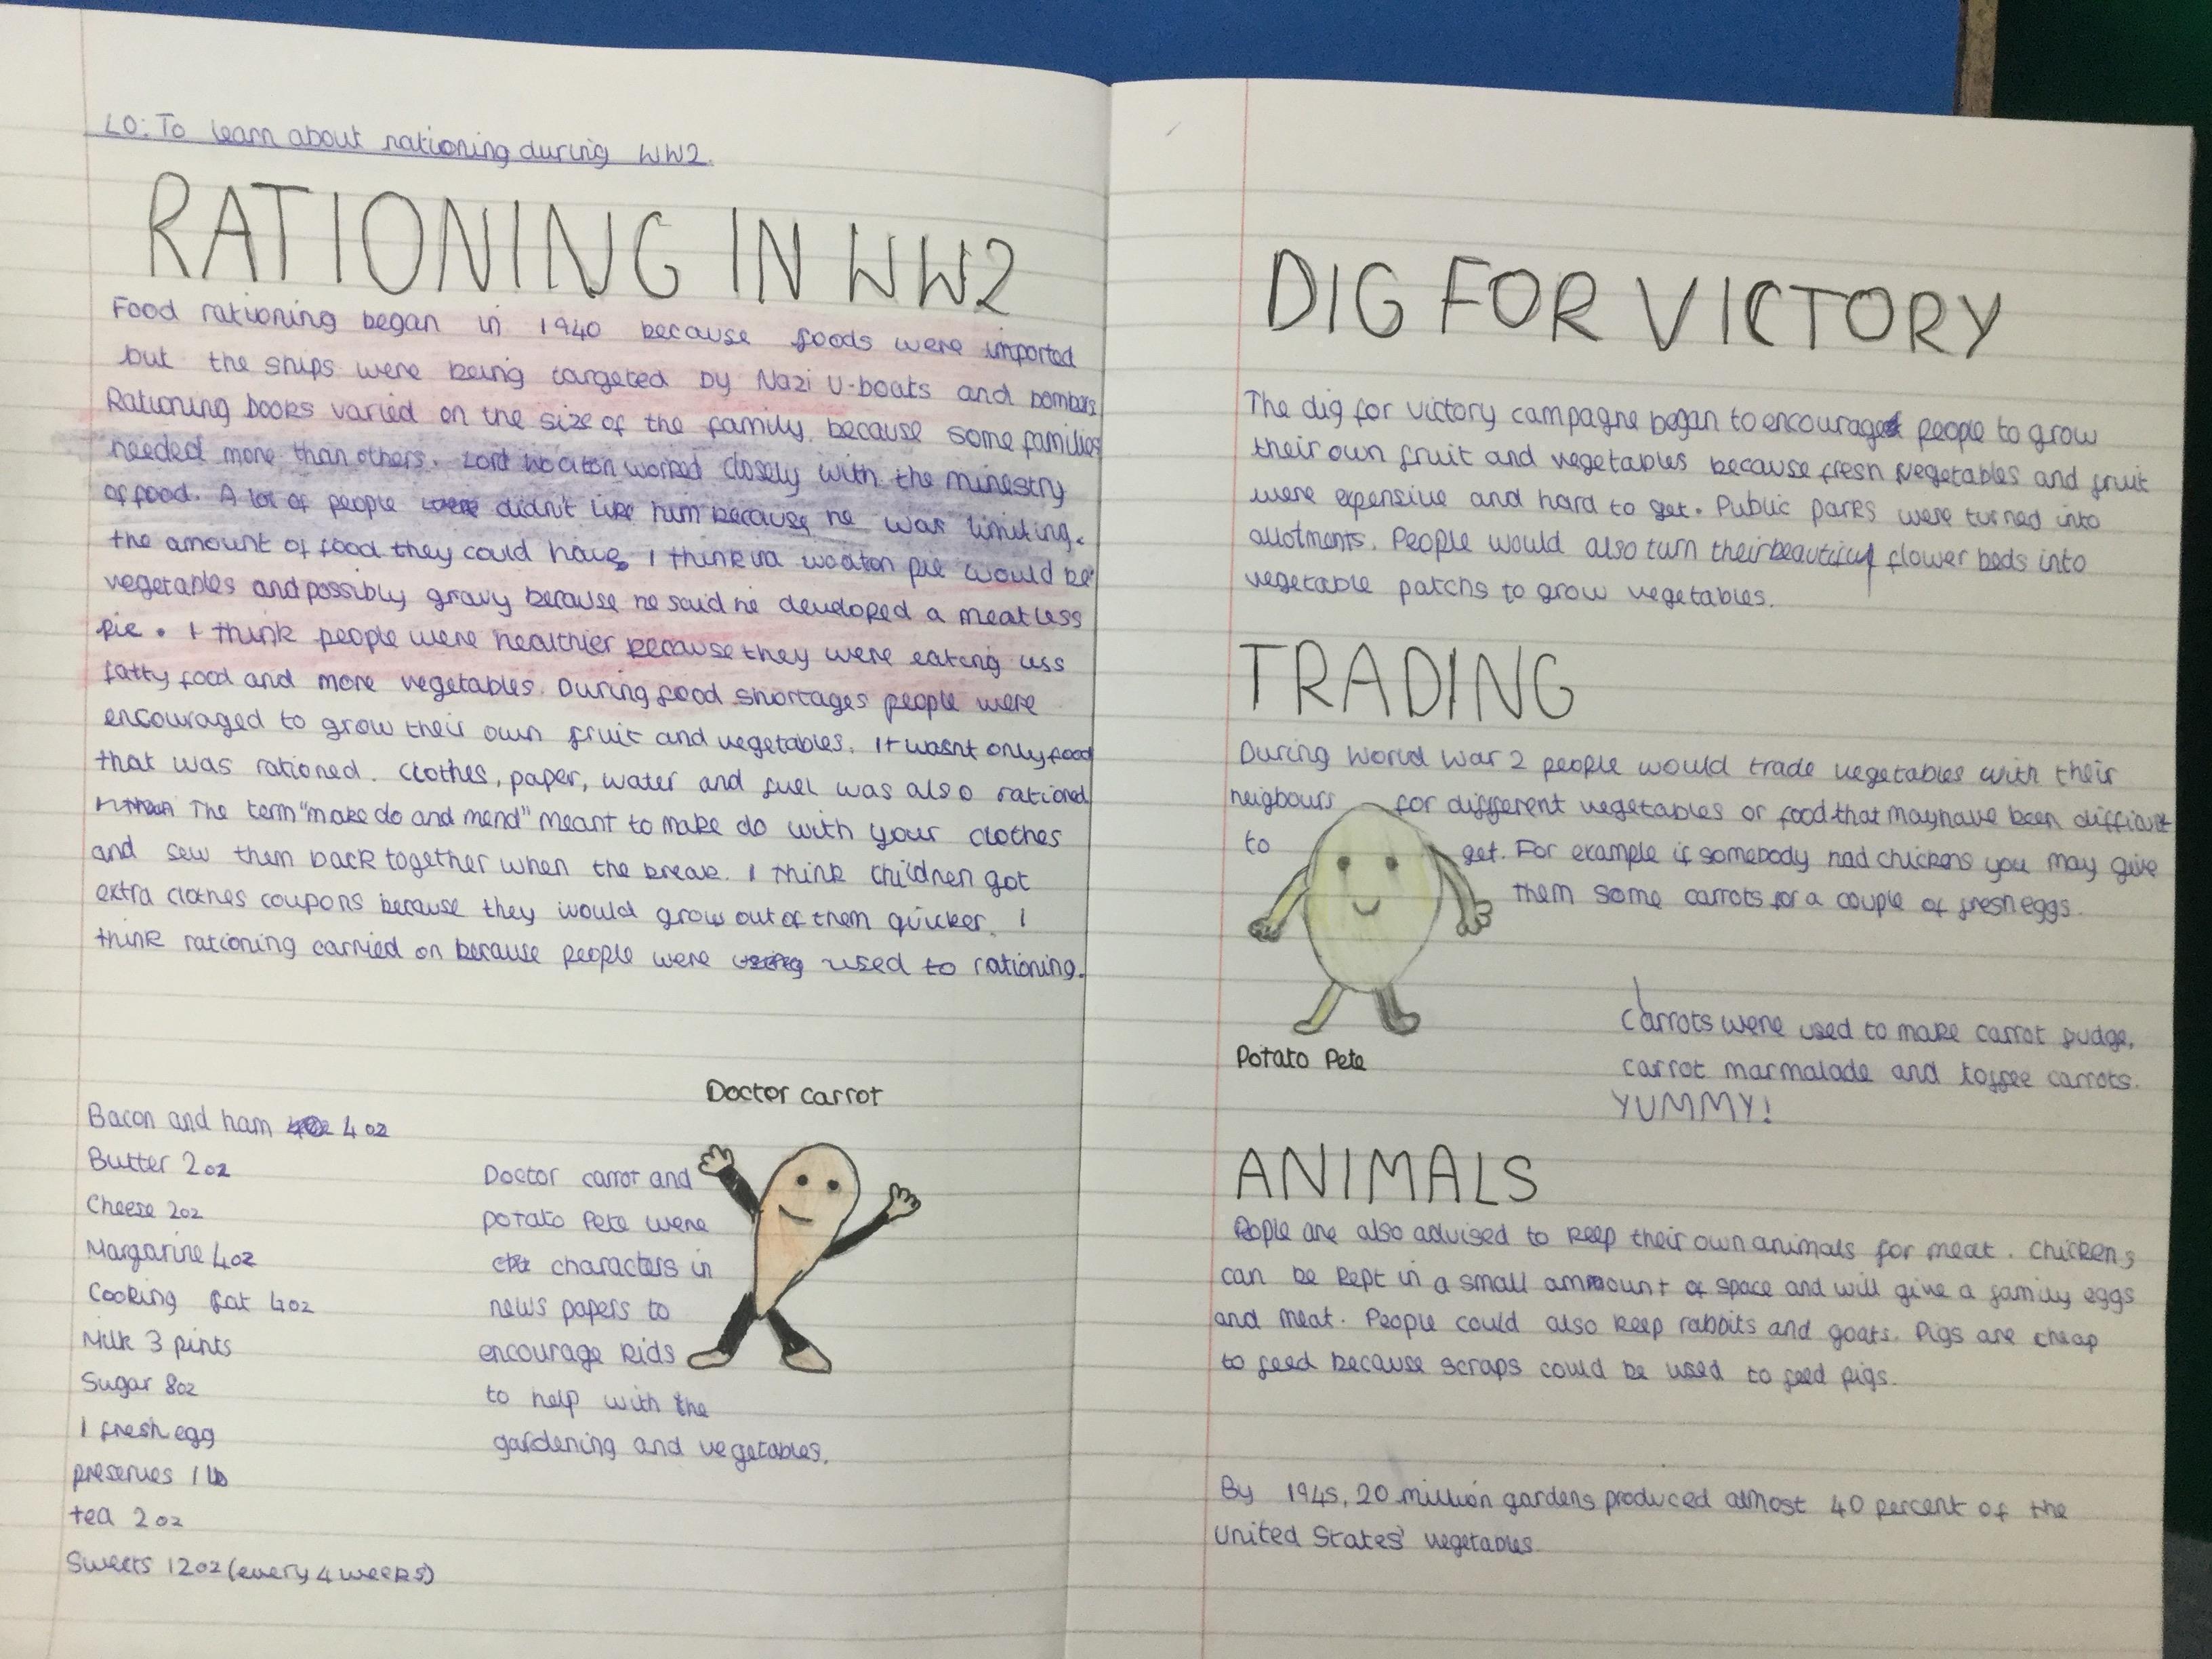 LO: To learn about rationing during WW2.
RATIONING IN WW2
Food rationing began in 1940 because foods were imported
but the ships were being targeted by Nazi U-boats and bombers
Rationing books varied on the size of the family, because some families
needed more than others. Lord Wooton worked closely with the minestry
of food. A lot of people didn't like him because he was limiting.
the amount of food they could have. I think a wooton pie would be
vegetables and possibly gravy because he said he developed a meatless
pie. I think people were healthier because they were eating less
fatty food and more vegetables. During food shortages people were
encouraged to grow their own fruit and vegetables. It wasnt only food
that was rationed. Clothes, paper, water and fuel was also rationed
The term "make do and mend" meant to make do with your clothes
and sew them back together when the break. I think children got
extra clothes coupons because they would grow out of them quicker. I
think rationing carried on because people were used to rationing.
Doctor carrot
Bacon and ham 4oz
Butter 2oz
Cheese 2oz
Margarine 4oz
Cooking fat 4oz
Milk 3 pints
Sugar 8oz
1 fresh egg
preserves 1 lb
tea 2oz
Sweets 12oz (every 4 weeks)
Doctor carrot and
potato Pete were
characters in
news papers to
encourage kids
to help with the
gardening and vegetables.
DIG FOR VICTORY
The dig for victory campagne began to encourage people to grow
their own fruit and vegetables because fresh vegetables and fruit
were expensive and hard to get. Public parks were turned into
allotments. People would also turn their beautiful flower beds into
vegetable patchs to grow vegetables.
TRADING
During World War 2 people would trade vegetables with their
neigbours for different vegetables or food that may have been difficult
to get. For example if somebody had chickens you may give
them some carrots for a couple of fresh eggs.
Potato Pete
Carrots were used to make carrot fudge,
carrot marmalade and toffee carrots.
YUMMY!
ANIMALS
People are also advised to keep their own animals for meat. Chickens
can be kept in a small ammount of space and will give a family eggs
and meat. People could also keep rabbits and goats. Pigs are cheap
to feed because scraps could be used to feed pigs.
By 1945, 20 million gardens produced almost 40 percent of the
United States' vegetables.